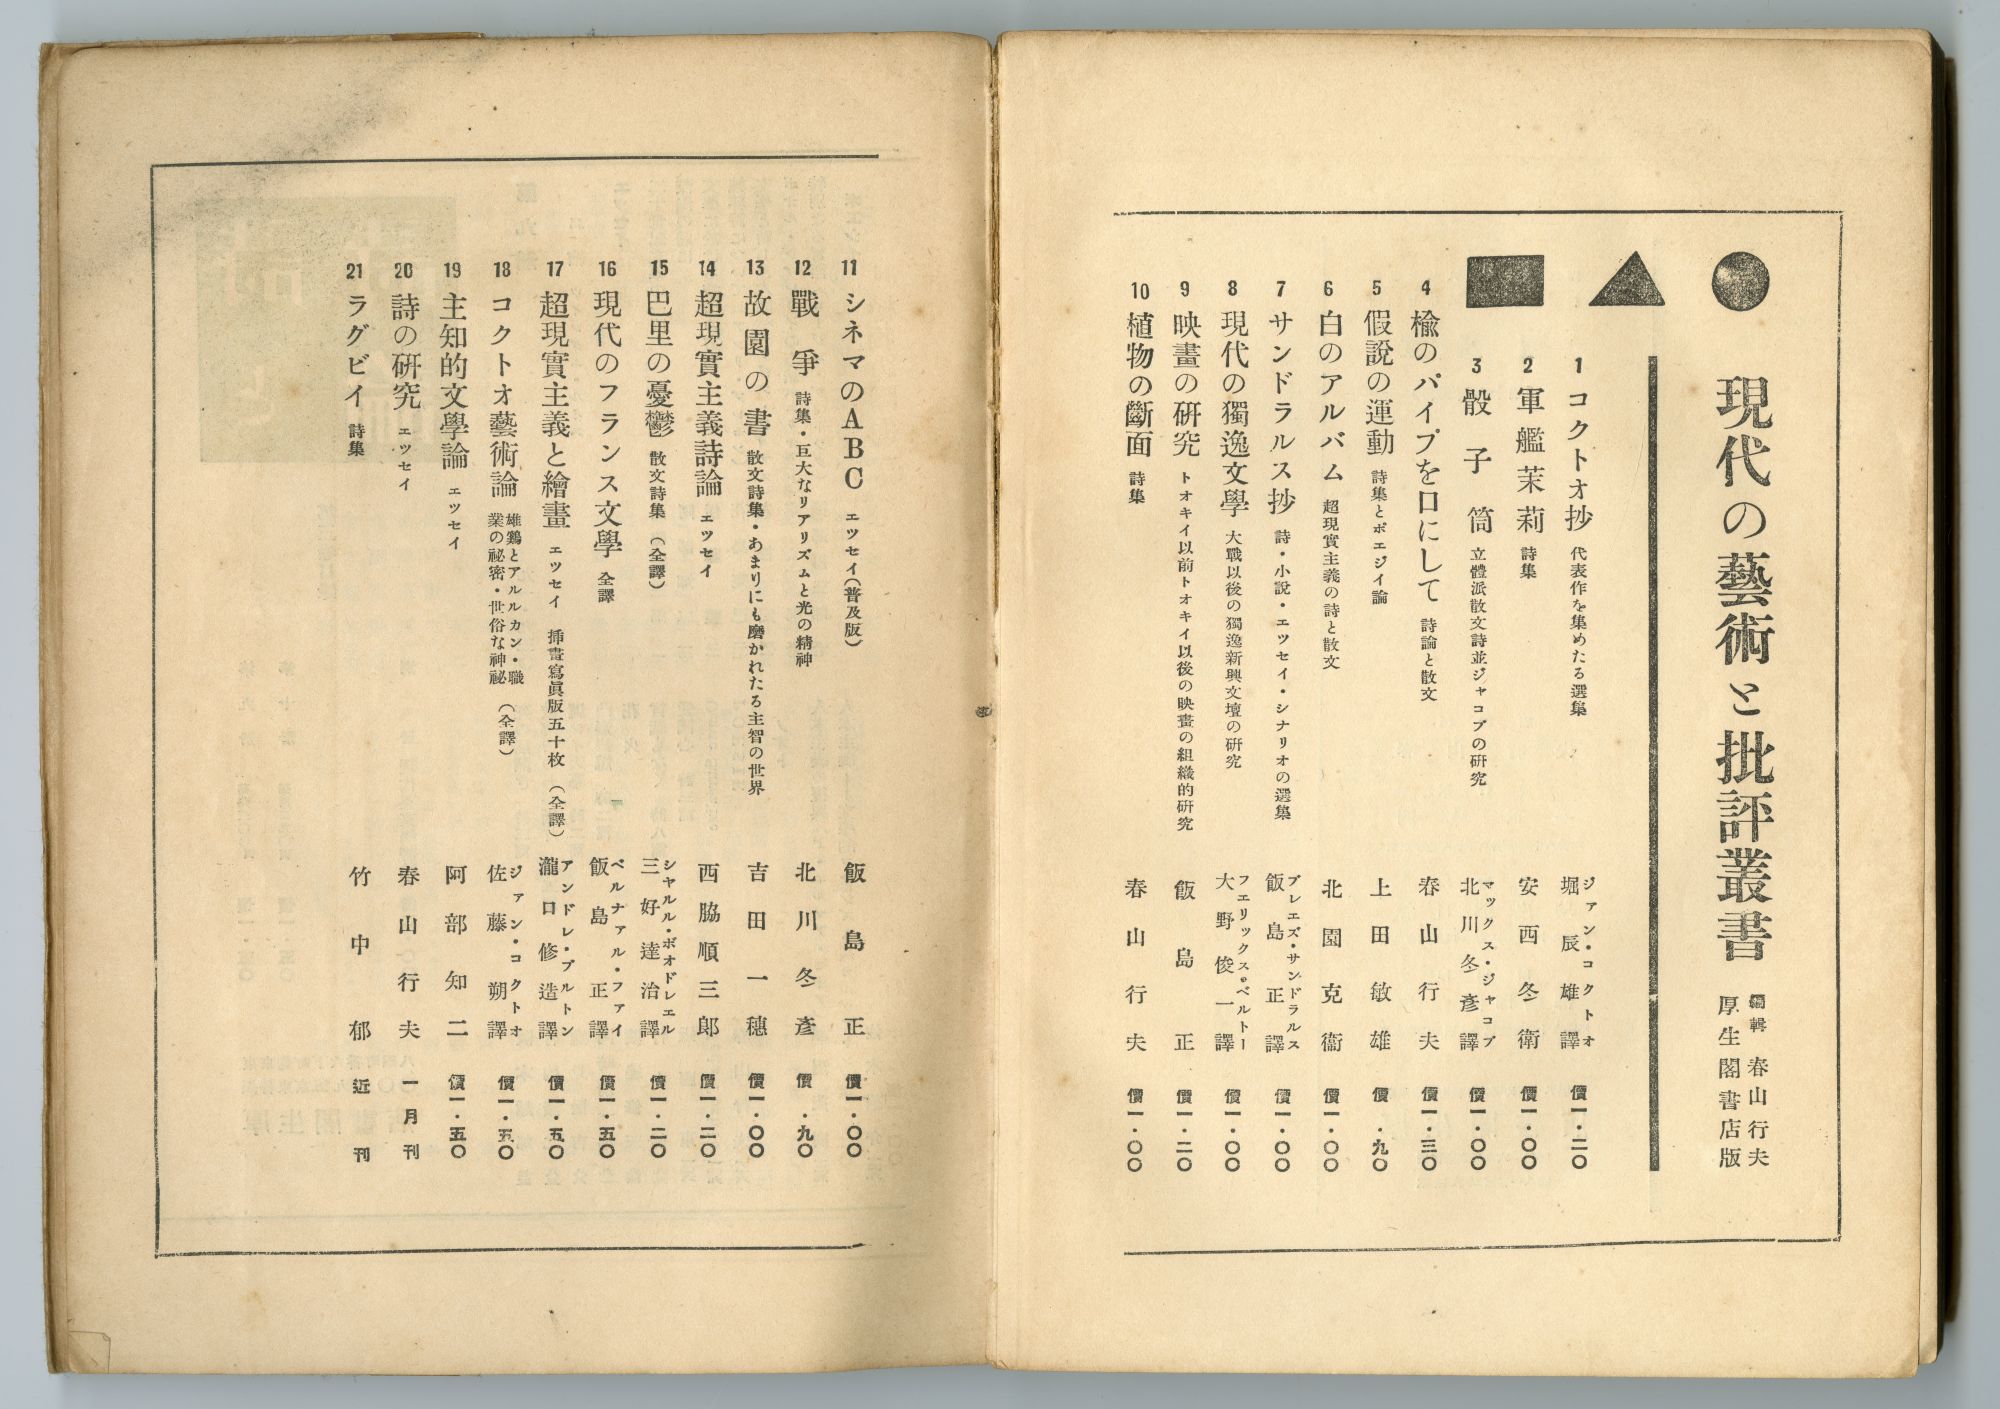 現代の藝術と批評叢書
編輯 春山行夫
厚生閣書店版
1 コクトオ抄 代表作を集めたる選集 ジァン・コクトオ 堀辰雄譯 價一・二〇
2 軍艦茉莉 詩集 安西冬衛 價一・〇〇
3 骰子筒 立體派散文詩並ジャコブの研究 マックス・ジャコブ 北川冬彥譯 價一・〇〇
4 楡のパイプを口にして 詩論と散文 春山行夫 價一・三〇
5 假說の運動 詩集とポエジイ論 上田敏雄 價・九〇
6 白のアルバム 超現實主義の詩と散文 北園克衞 價一・〇〇
7 サンドラルス抄 詩・小說・エツセイ・シナリオの選集 ブレエズ・サンドラルス 飯島正譯 價一・〇〇
8 現代の獨逸文學 大戰以後の獨逸新興文壇の研究 フエリックス・ベルトー 大野俊一譯 價一・〇〇
9 映畫の研究 トオキイ以前トオキイ以後の映畫の組織的研究 飯島正 價一・二〇
10 植物の斷面 詩集 春山行夫 價一・〇〇
11 シネマのABC エツセイ(普及版) 飯島正 價一・〇〇
12 戰爭 詩集・巨大なリアリズムと光の精神 北川冬彥 價・九〇
13 故園の書 散文詩集・あまりにも磨かれたる主智の世界 吉田一穗 價一・〇〇
14 超現實主義詩論 エツセイ 西脇順三郎 價一・二〇
15 巴里の憂鬱 散文詩集(全譯) シヤルル・ボオドレエル 三好達治譯 價一・二〇
16 現代のフランス文學 全譯 ベルナァル・ファイ 飯島正譯 價一・五〇
17 超現實主義と繪畫 エツセイ 挿畫寫眞版五十枚(全譯) アンドレ・ブルトン 瀧口修造譯 價一・五〇
18 コクトオ藝術論 雄鷄とアルルカン・職業の祕密・世俗な神祕(全譯) ジァン・コクトオ 佐藤朔譯 價一・五〇
19 主知的文學論 エツセイ 阿部知二 價一・五〇
20 詩の研究 エツセイ 春山行夫 一月刊
21 ラグビイ 詩集 竹中郁 近刊